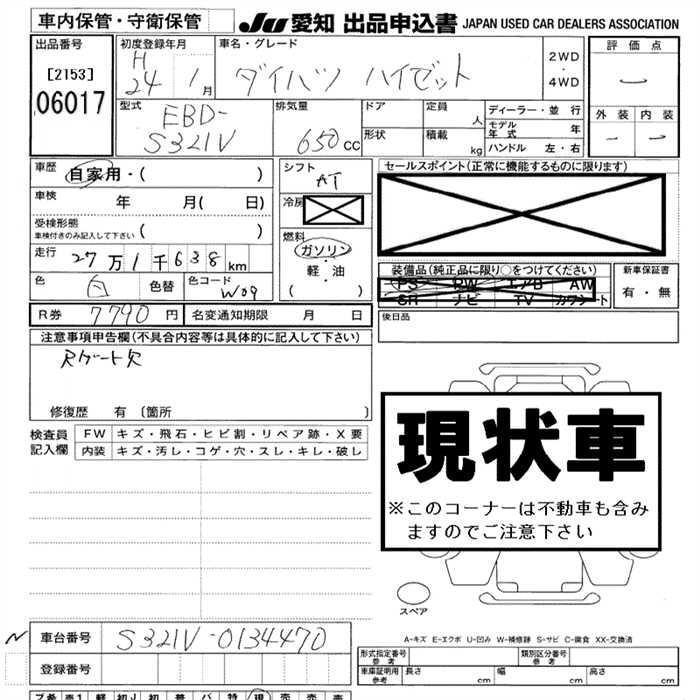 車内保管・守衛保管
JU 愛知 出品申込書 JAPAN USED CAR DEALERS ASSOCIATION
出品番号
[2153]
06017
初度登録年月
H 24 1 月
車名・グレード
ダイハツ ハイゼット
2WD
・
4WD
評価点
外装 内装
型式
EBD-
S321V
排気量
650 cc
ドア
形状
定員
人
積載
kg
ディーラー・並行
モデル年式 年
ハンドル 左・右
車歴 自家用・( )
車検 年 月( 日)
受検形態
車検付きのみ記入して下さい ( )
走行 27万1千638 km
色 白 色替 色コード W09
シフト
AT
冷房
燃料
ガソリン
・
軽・油
( )
セールスポイント(正常に機能するものに限ります)
装備品(純正品に限り○をつけてください)
PS PW エアB AW
SR ナビ TV カワシート
新車保証書
有・無
R券 7790 円 名変通知期限 月 日
後日品
注意事項申告欄(不具合内容等は具体的に記入して下さい)
Rゲート欠
修復歴 有 [箇所 ]
検査員
記入欄
FW キズ・飛石・ヒビ割・リペア跡・X要
内装 キズ・汚レ・コゲ・穴・スレ・キレ・破レ
現状車
※このコーナーは不動車も含み
ますのでご注意下さい
スペア
A-キズ E-エクボ U-凹み W-補修跡 S-サビ C-腐食 XX-交換済
N
車台番号 S321V-0134470
登録番号
形式指定番号
参考
類別区分番号
参考
車庫証明用
参考
長さ cm 幅 cm 高さ cm